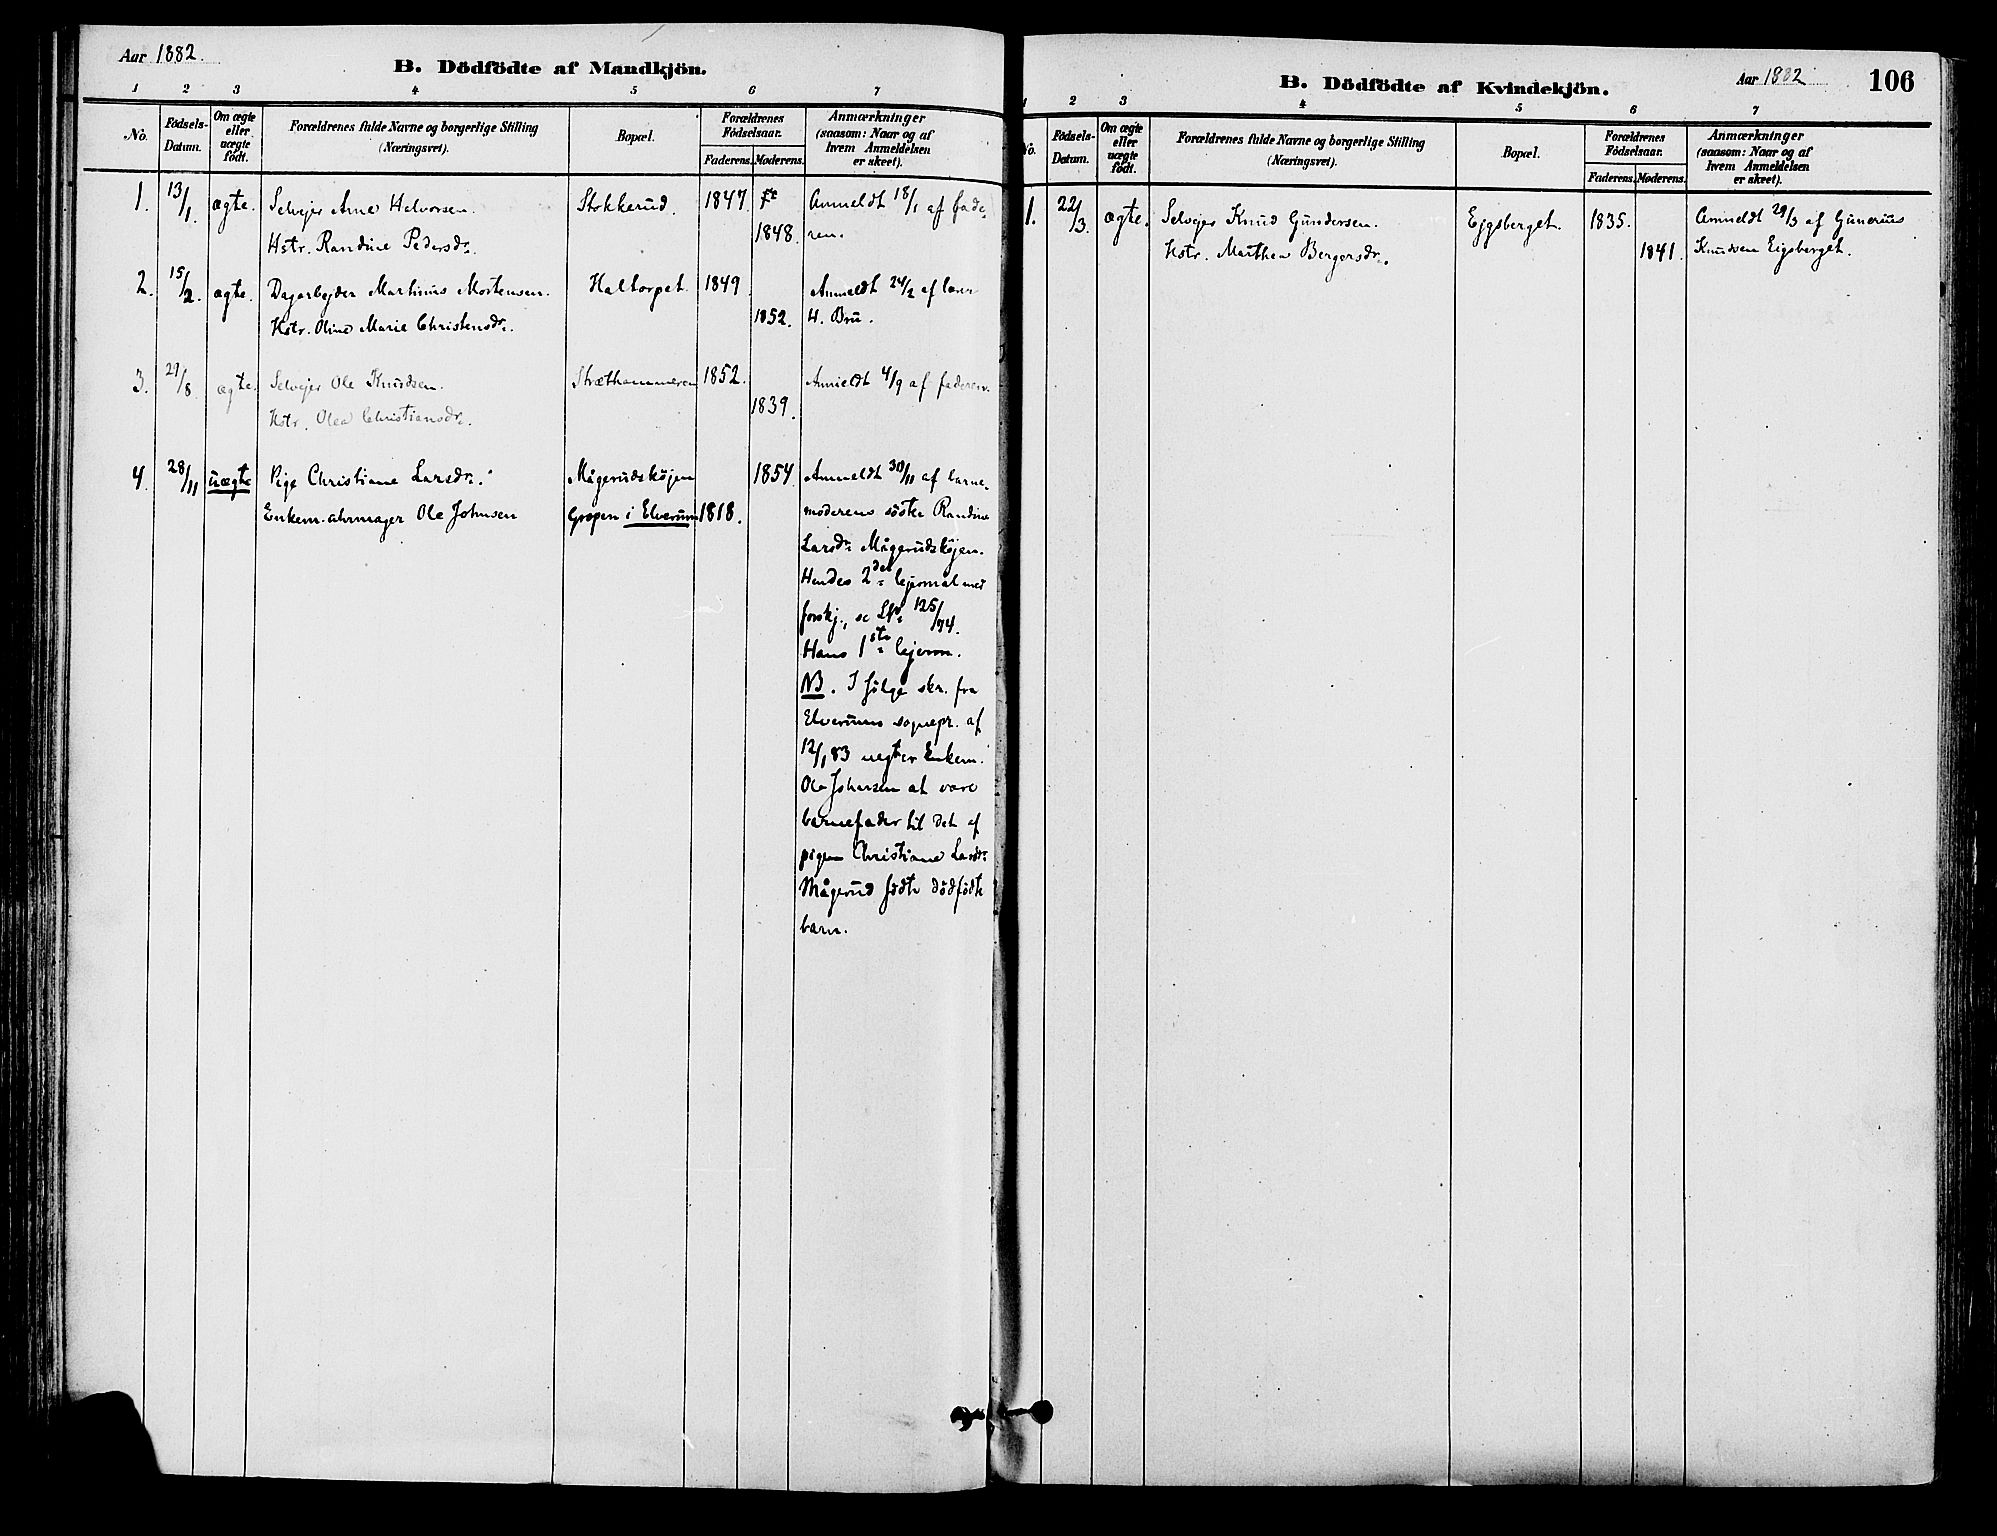 Aar 1882.
B. Dödfödte af Mandkjön.
1 2 3 4 5 6 7
No. Födsels-Datum. Om ægte eller uægte födt. Forældrenes fulde Navne og borgerlige Stilling (Næringsvei). Bopæl. Forældrenes Födselsaar. Faderens. Moderens. Anmærkninger (saasom: Naar og af hvem Anmeldelsen er skeet).
1. 13/1. ægte. Selvejer Arne Halvorsen. Stokkerud. 1847. Anmeldt 18/1 af fade-
Hstr. Randine Pedersdr. 1848. ren.
2. 15/2. ægte. Dagarbejder Martinus Mortensen. Haltorpet. 1849 Anmeldt 24/2 af lærer
Hstr. Oline Marie Christensdr. 1852. H. Bru.
3. 29/8. ægte. Selvejer Ole Knudsen. Stræthammeren 1852. Anmeldt 4/9 af faderen.
Hstr. Olea Christiansdr. 1839.
4. 28/11 uægte Pige Christiane Larsdr. Mågerudskøjen 1854. Anmeldt 30/11 af barne-
Enkem. uhrmager Ole Johnsen Gropen i Elverum 1818. moderens söster Randine
Larsdr. Mågerudskøjen.
Hendes 2det lejermål med
forskj., se 125/74.
Hans 1ste lejerm.
NB. I fölge skr. fra
Elverums sognepr. af
12/1 83 negter Enkem.
Ole Johnsen at være
barnefader til det af
pigen Christiane Larsdr.
Mågerud födte dödfödte
barn.
Aar 1882 106
B. Dödfödte af Kvindekjön.
1 2 3 4 5 6 7
No. Födsels-Datum. Om ægte eller uægte födt. Forældrenes fulde Navne og borgerlige Stilling (Næringsvei). Bopæl. Forældrenes Födselsaar. Faderens. Moderens. Anmærkninger (saasom: Naar og af hvem Anmeldelsen er skeet).
1. 22/3. ægte. Selvejer Knud Gundersen. Ejgsberget. 1835. Anmeldt 29/3 af Gunerius
Hstr. Marthea Bergersdr. 1841. Knudsen Eigsberget.